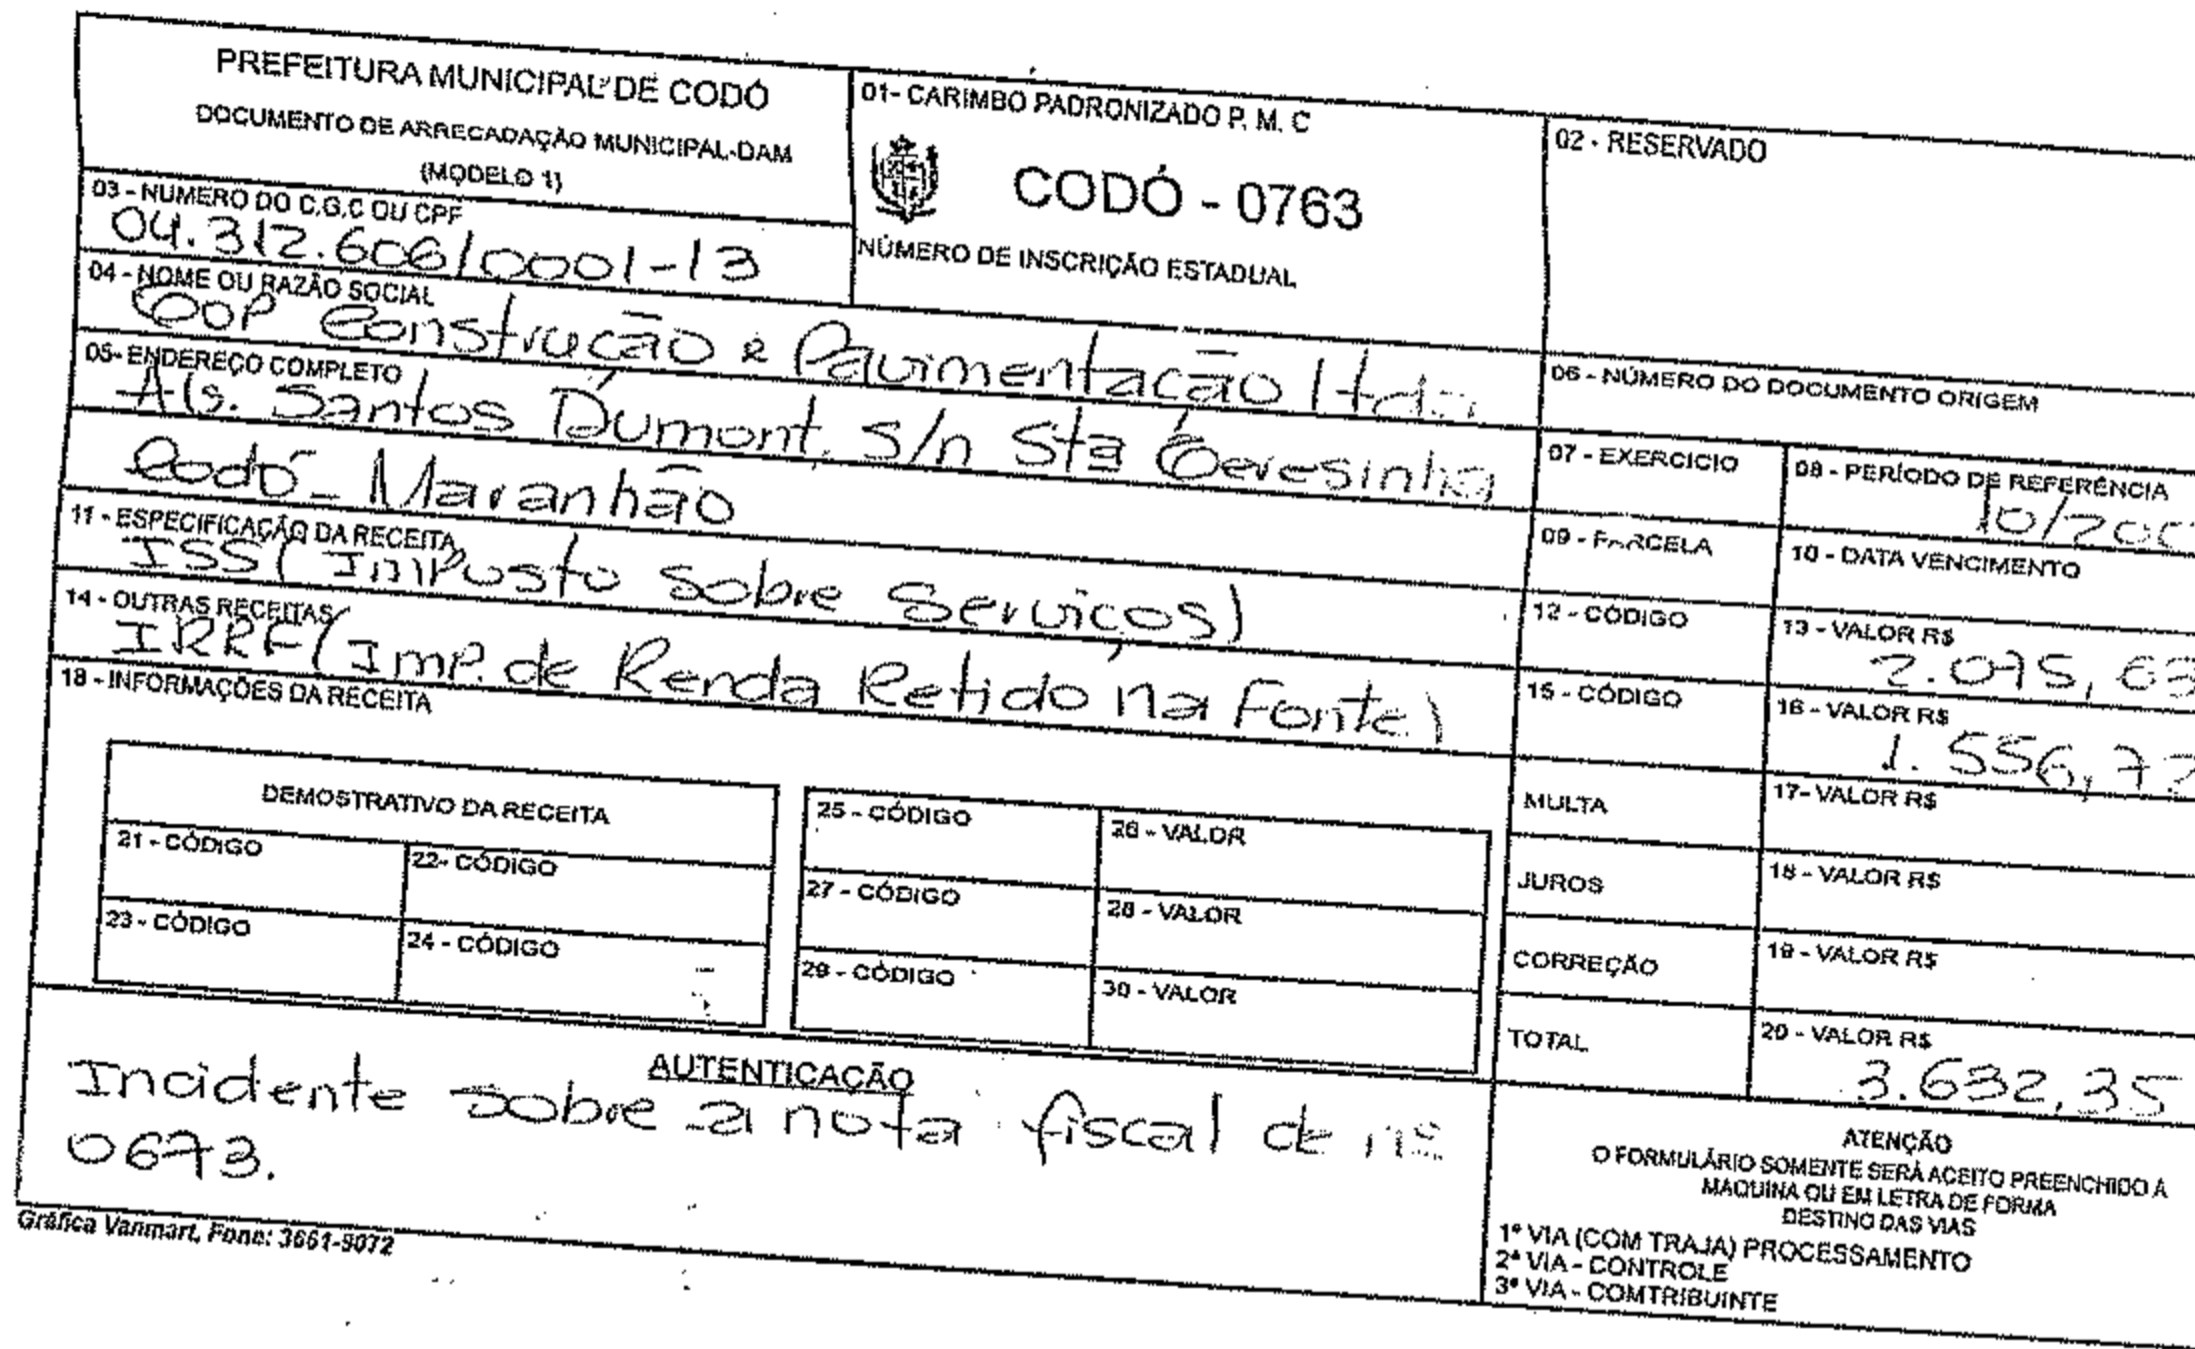 PREFEITURA MUNICIPAL DE CODÓ
DOCUMENTO DE ARRECADAÇÃO MUNICIPAL-DAM
(MODELO 1)
01- CARIMBO PADRONIZADO P. M. C
CODÓ - 0763
NÚMERO DE INSCRIÇÃO ESTADUAL
02 - RESERVADO
03 - NUMERO DO C.G.C OU CPF
04.312.606/0001-13
04 - NOME OU RAZÃO SOCIAL
Construcão e Pavimentacão ltda
05- ENDEREÇO COMPLETO
Santos Dumont, s/n Sta Teresinha
Codó - Maranhão
06 - NÚMERO DO DOCUMENTO ORIGEM
07 - EXERCICIO
08 - PERÍODO DE REFERÊNCIA
09 - PARCELA
10 - DATA VENCIMENTO
11 - ESPECIFICAÇÃO DA RECEITA
ISS (Imposto Sobre Serviços)
12 - CÓDIGO
13 - VALOR R$
14 - OUTRAS RECEITAS
IRRF (Imp. de Renda Retido na Fonte)
15 - CÓDIGO
16 - VALOR R$
1.556,72
18 - INFORMAÇÕES DA RECEITA
DEMOSTRATIVO DA RECEITA
21 - CÓDIGO
22- CÓDIGO
23 - CÓDIGO
24 - CÓDIGO
25 - CÓDIGO
26 - VALOR
27 - CÓDIGO
28 - VALOR
29 - CÓDIGO
30 - VALOR
MULTA
17- VALOR R$
JUROS
18 - VALOR R$
CORREÇÃO
19 - VALOR R$
TOTAL
20 - VALOR R$
3.632,35
AUTENTICAÇÃO
Incidente sobre a nota fiscal de nº
0673.
ATENÇÃO
O FORMULÁRIO SOMENTE SERÁ ACEITO PREENCHIDO A
MAQUINA OU EM LETRA DE FORMA
DESTINO DAS VIAS
1ª VIA (COM TRAJA) PROCESSAMENTO
2ª VIA - CONTROLE
3ª VIA - COMTRIBUINTE
Gráfica Vanmart, Fone: 3661-9072